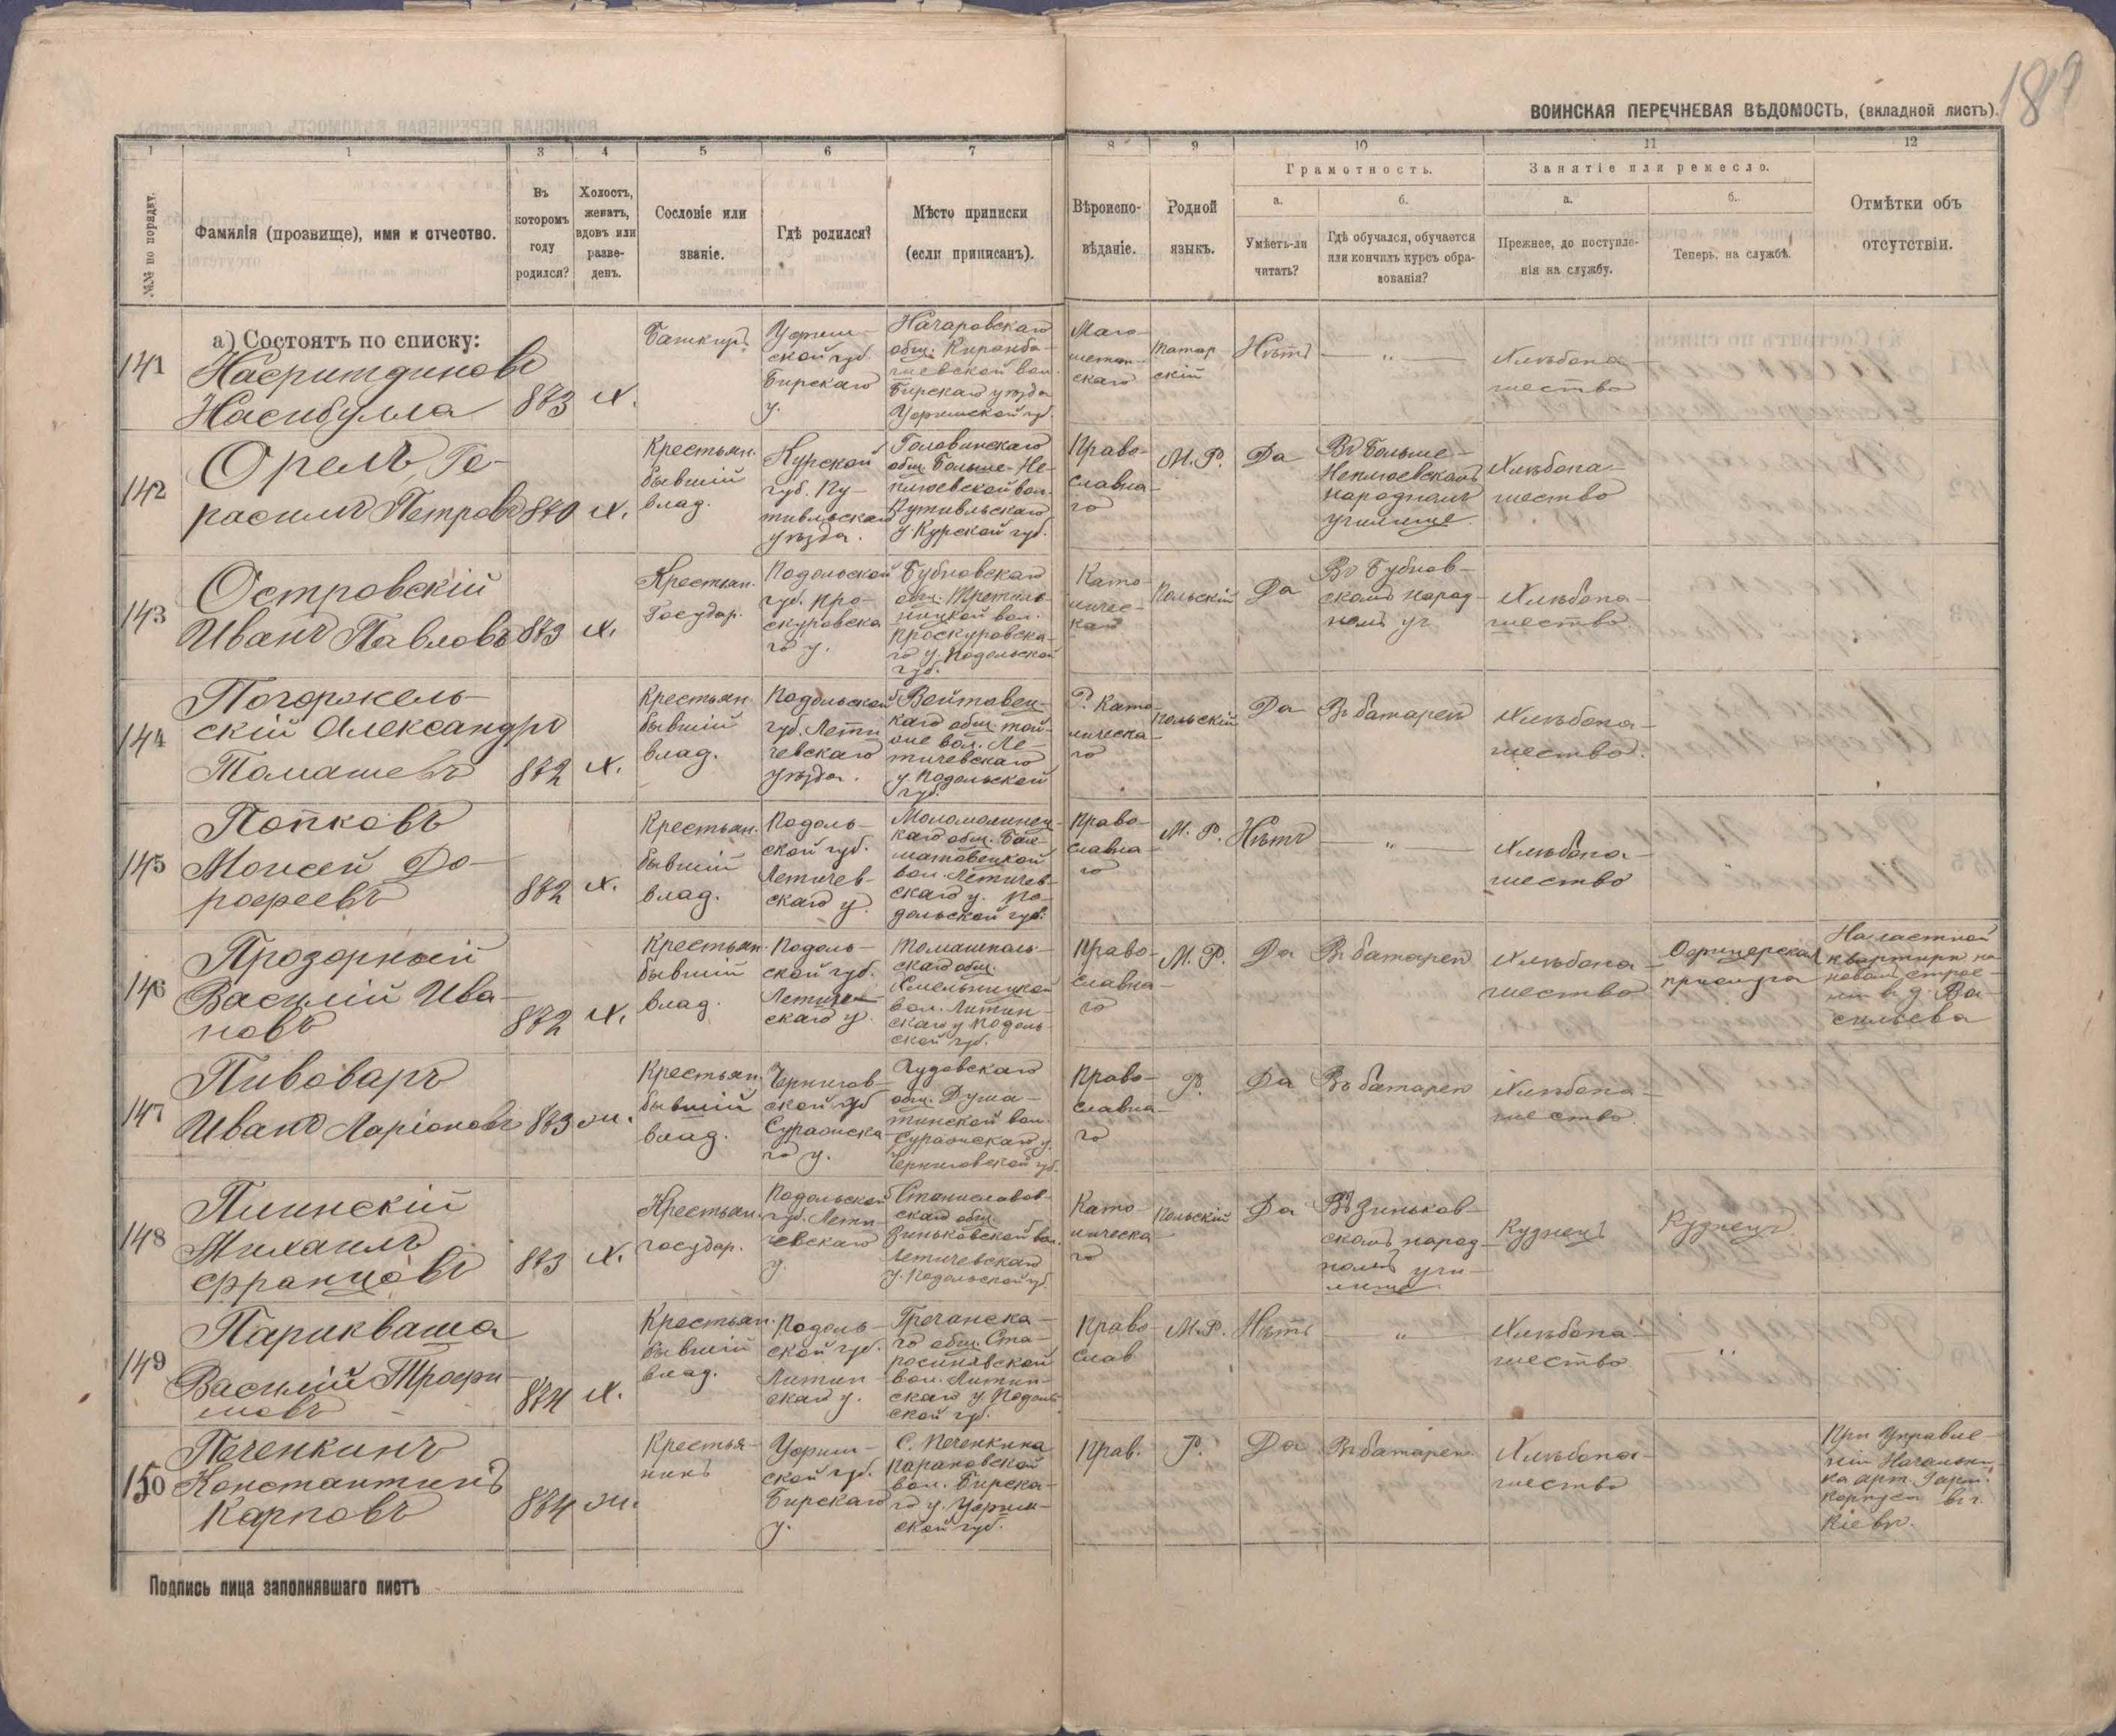 189
ВОИНСКАЯ ПЕРЕЧНЕВАЯ ВѢДОМОСТЬ, (вкладной листъ).
1 1 3 4 5 6 7 8 9 10 11 12
№№ по порядку.
Фамилія (прозвище), имя и отчество.
Въ которомъ году родился?
Холостъ, женатъ, вдовъ или разве-денъ.
Сословіе или званіе.
Гдѣ родился?
Мѣсто приписки (если приписанъ).
Вѣроиспо-вѣданіе.
Родной языкъ.
Грамотность.
а. Умѣетъ-ли читать?
б. Гдѣ обучался, обучается или кончилъ курсъ обра-зованія?
Занятіе или ремесло.
а. Прежнее, до поступле-нія на службу.
б. Теперь, на службѣ.
Отмѣтки объ отсутствіи.
а) Состоятъ по списку:
141
Насритдиновъ
Насибулла
873
Х.
Башкиръ
Уфим-
ской губ.
Бирскаго
у.
общ.
Бирскаго уѣзда
Уфимской губ.
Маго-
метан-
скаго
Татар
скій
Нѣтъ
— „ —
Хлѣбопа-
шество
142
Орелъ, Ге-
расимъ Петровъ
870
Х.
Крестьян.
бывшій
влад.
Курской
губ. Пу-
тивльскаго
уѣзда.
Головинскаго
общ. Больше-Не-
плюевской вол.
Путивльскаго
у. Курской губ.
Право-
славна-
го
М. Р.
Да
Въ Больше-
Неплюевскомъ
народномъ
училище
Хлѣбопа-
шество
143
Островскій
Иванъ Павловъ
873
Х.
Крестьян.
Государ.
Подольской
губ. Про-
скуровска
го у.
Бубновскаго
общ.
вол.
Проскуровска-
го у. Подольской
губ.
Като-
личес-
каго
Польскій
Да
Въ Бубнов-
скомъ народ-
номъ уч
Хлѣбопа-
шество
144
Погоржель-
скій Александръ
Томашевъ
872
Х.
Крестьян.
бывшій
влад.
Подольской
губ. Лети
чевскаго
уѣзда.
Войтовец-
каго общ. той-
оже вол. Ле-
тичевскаго
у. Подольской
губ.
Р. Като-
лическа-
го
Польскій
Да
Въ батареи
Хлѣбопа-
шество.
145
Попковъ
Моисей До-
рофеевъ
872
Х.
Крестьян.
бывшій
влад.
Подоль-
ской губ.
Летичев-
скаго у.
Моломолинец-
каго общ.
вол. Летичев-
скаго у. По-
дольской губ.
Право-
славна-
го
М. Р.
Нѣтъ
— „ —
Хлѣбопа-
шество
146
Прозорный
Василій Ива-
новъ
872
Х.
Крестьян.
бывшій
влад.
Подоль-
ской губ.
скаго у.
Томашполь-
скаго общ.
Хмельницкой
вол. Литин-
скаго у Подоль-
ской губ.
Право-
славна-
го
М. Р.
Да
Въ батареи
Хлѣбопа-
шество
Офицерская
прислуга
На частной
квартирѣ на
новом строе-
ніи въ д. Ва-
сильева
147
Пивоваръ
Иванъ Ларіоновъ
873
Ж.
Крестьян.
бывшій
влад.
Чернигов-
ской губ
Суражска-
го у.
Чудовскаго
общ. Душа-
тинской вол.
Суражскаго у.
Черниговской губ.
Право-
славна-
го
Р.
Да
Въ батареи
Хлѣбопа-
шество.
148
Плинскій
Михаилъ
Францовъ
873
Х.
Крестьян.
государ.
Подольской
губ. Лети-
чевскаго
у.
Станиславов-
скаго общ
Зиньковской вол.
Летичевскаго
у. Подольской губ.
Като
лическа
го
Польскій
Да
Въ Зиньков-
скомъ народ-
номъ учи-
лище.
Кузнецъ
Кузнецъ
149
Париквaша
Василій Трофи-
мовъ
874
Х.
Крестьян.
бывшій
влад.
Подоль-
ской губ.
Литин-
скаго у.
Гречанска-
го общ. Ста-
росинявской
вол. Литин-
скаго у. Подоль-
ской губ.
Право-
слав
М. Р.
Нѣтъ
— „ —
Хлѣбопа-
шество
— „
150
Печенкинъ
Константинъ
Карповъ
874
Ж.
Крестья-
нинъ
Уфим-
ской губ.
Бирскаго
у.
С. Печенкина
вол. Бирска-
го у. Уфим-
ской губ.
Прав.
Р.
Да
Въ батареи.
Хлѣбопа-
шество
При Управле-
ніи Начальни-
ка арт.
корпуса въ г.
Кіевѣ.
Подпись лица заполнявшаго листъ